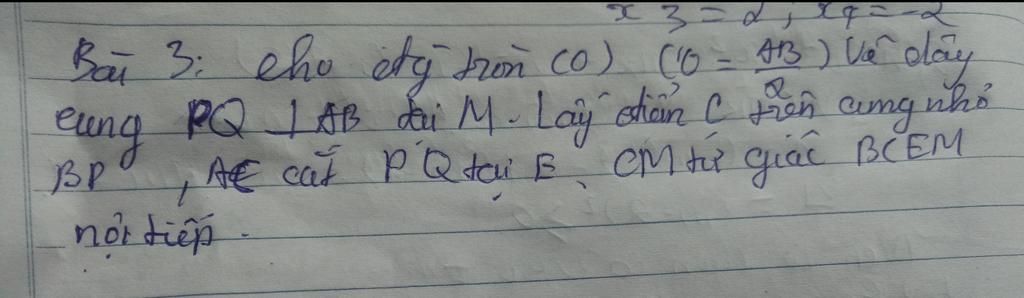 x 3 = 2, x4 = -2
Bài 3: cho đg tròn (O) (O = AB/2) Vẽ dây
cung PQ ⊥ AB tại M. Lấy điểm C trên cung nhỏ
BP, AC cắt PQ tại E. CM tứ giác BCEM
nội tiếp.